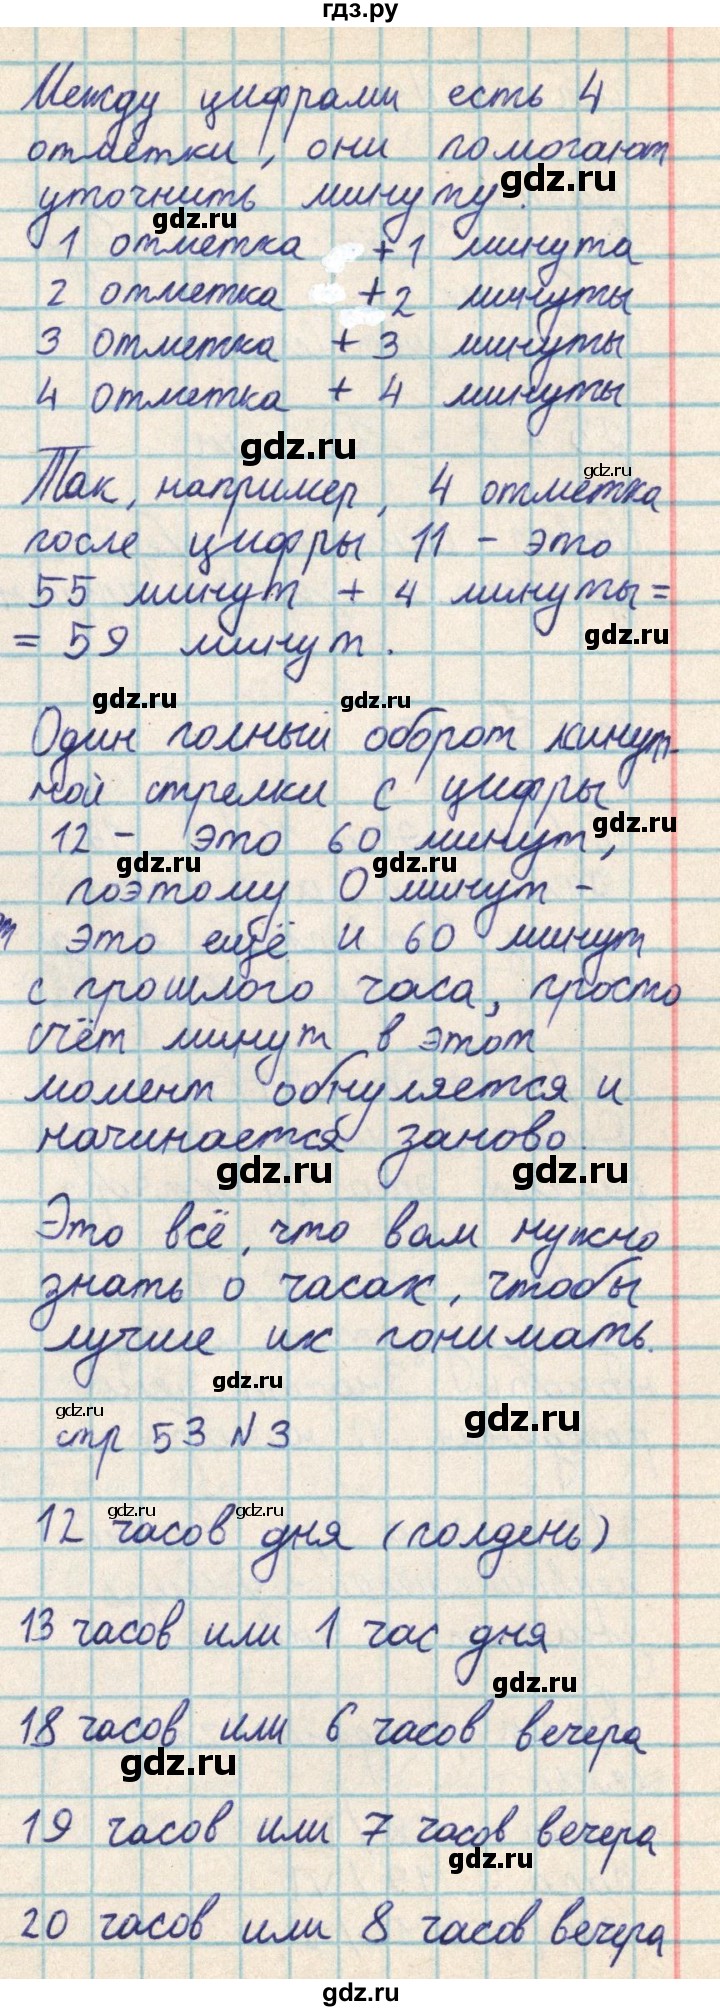 гдз.ру
Между цифрами есть 4
отметки, они помогают
уточнить минуту.
1 отметка +1 минута
2 отметка +2 минуты
3 отметка +3 минуты
4 отметка + 4 минуты
Так, например, 4 отметка
после цифры 11 - это
55 минут + 4 минуты=
= 59 минут.
Один полный оборот минут-
ной стрелки с цифры
12 - это 60 минут,
поэтому 0 минут -
это ещё и 60 минут
с прошлого часа, просто
счёт минут в этот
момент обнуляется и
начинается заново.
Это всё, что вам нужно
знать о часах, чтобы
лучше их понимать.
стр 53 №3
12 часов дня (полдень)
13 часов или 1 час дня
18 часов или 6 часов вечера
19 часов или 7 часов вечера
20 часов или 8 часов вечера
gdz.ru